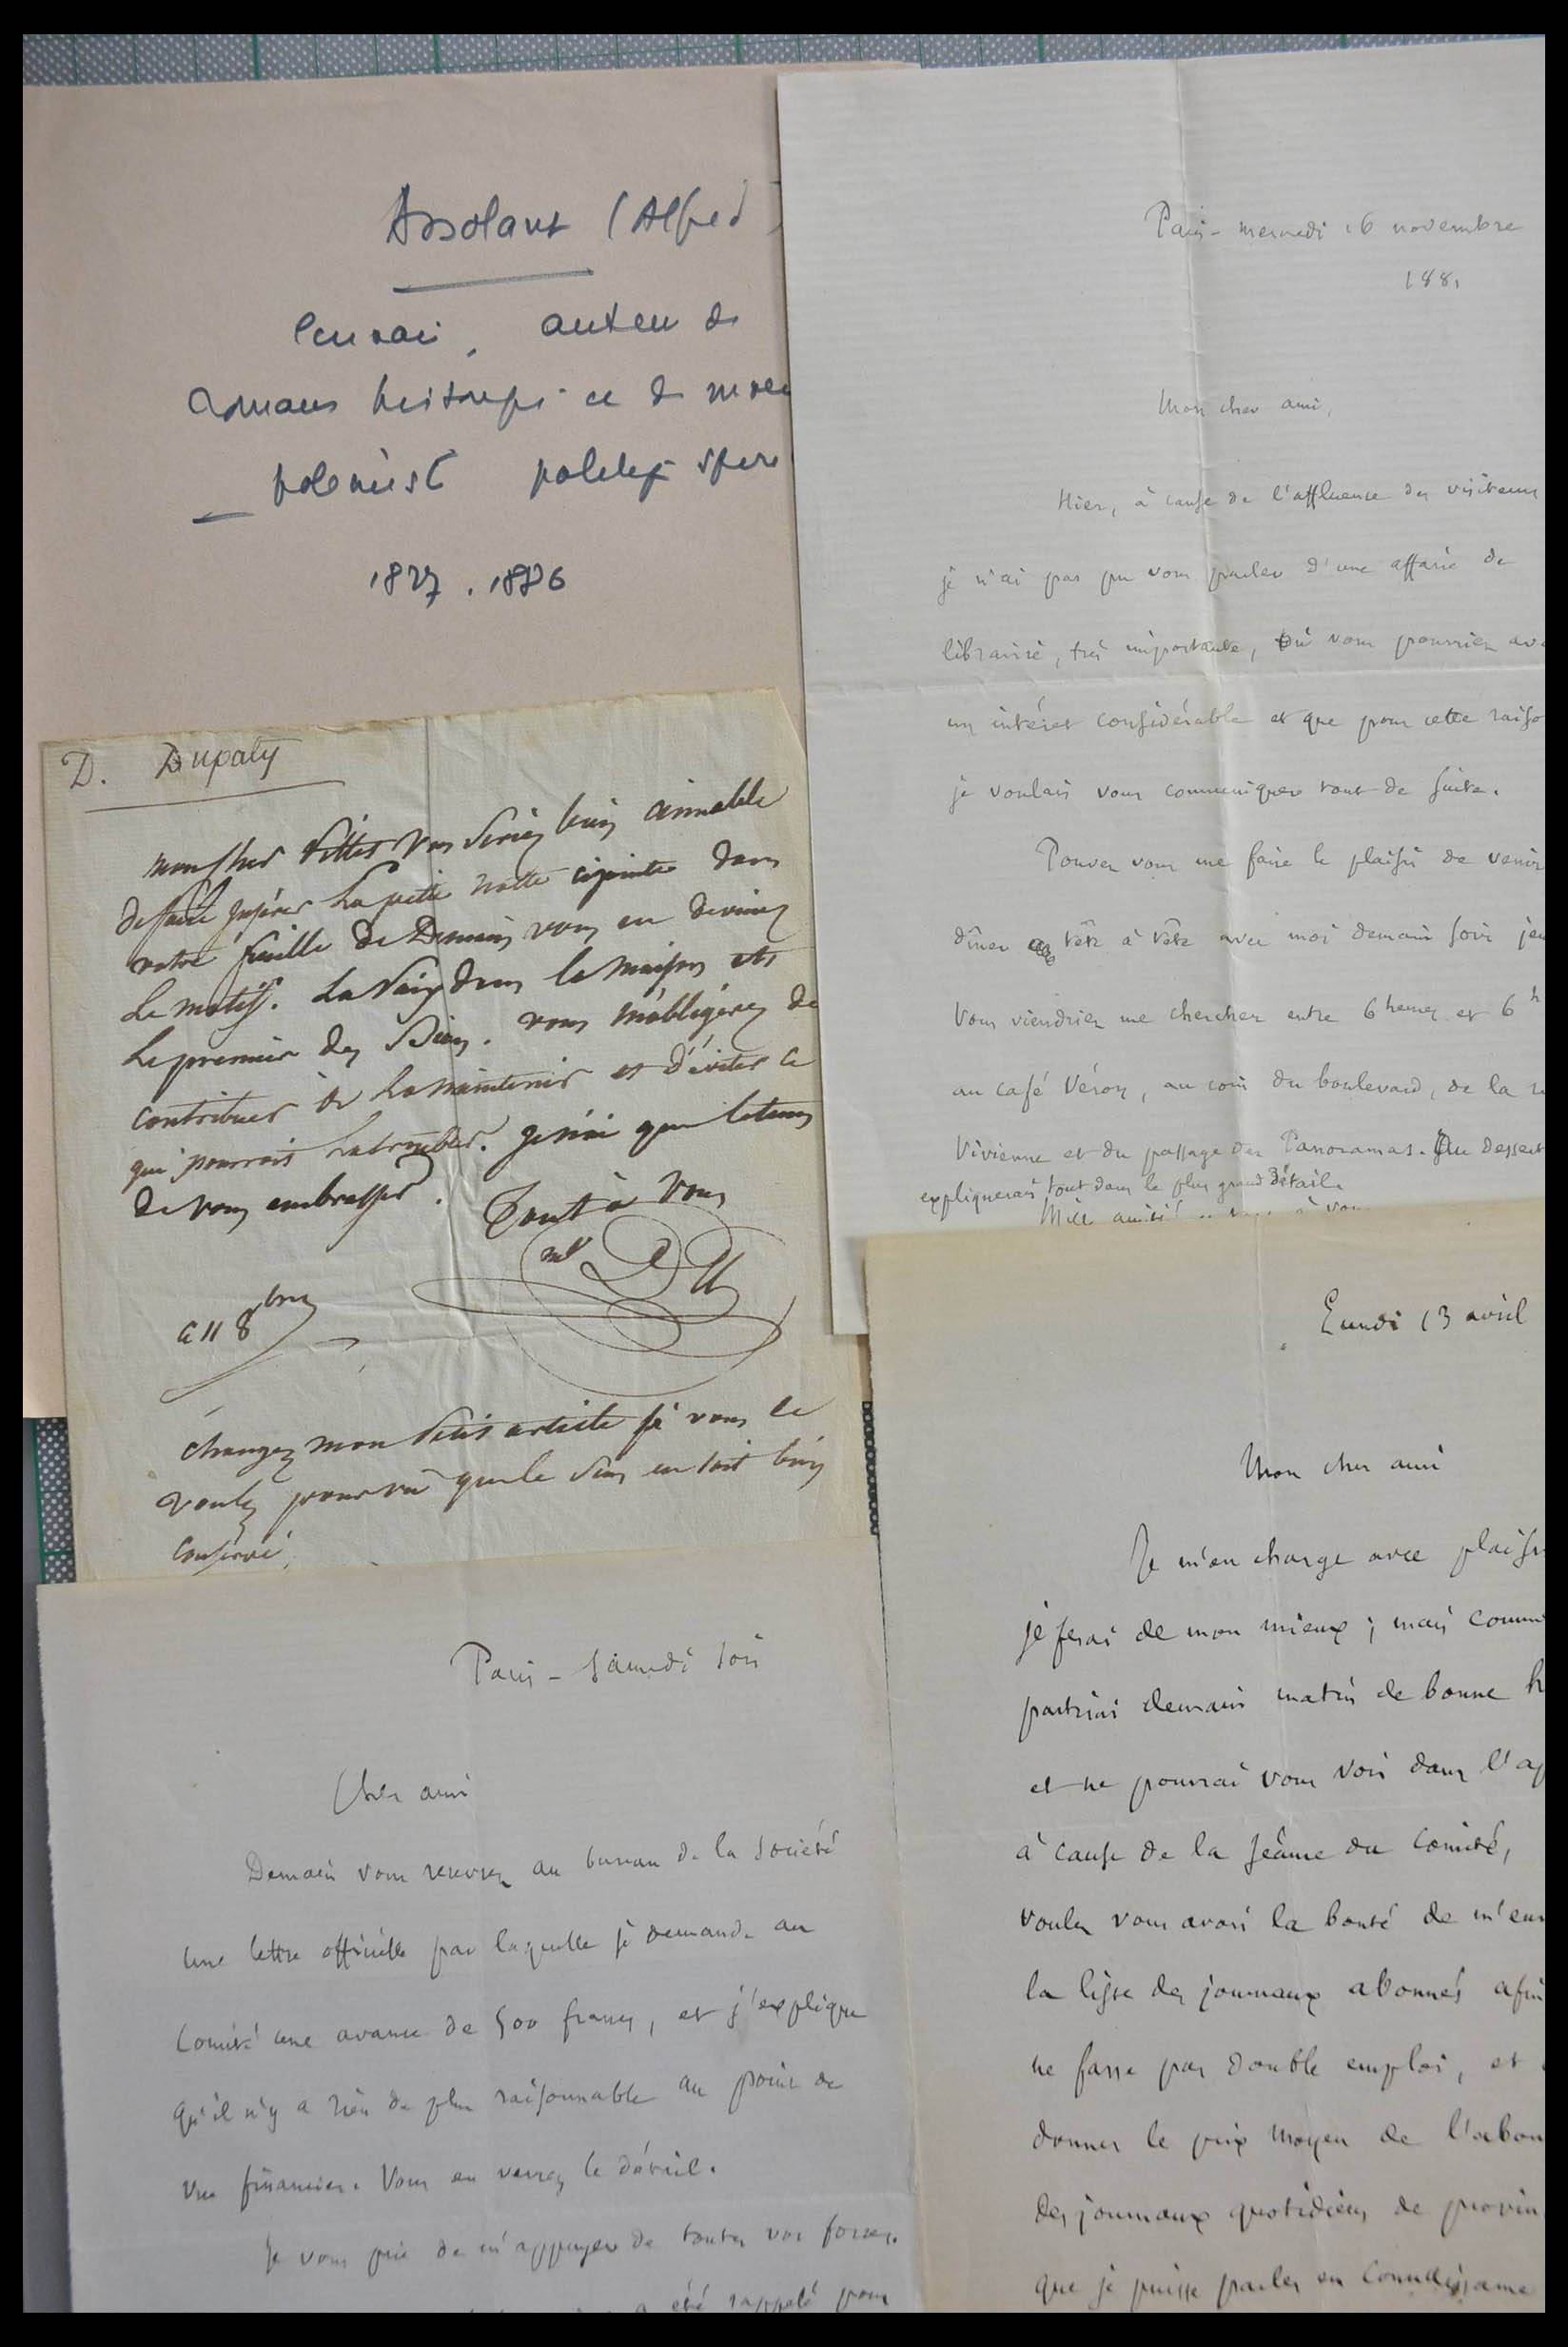 Assolant (Alfred)
auteur de
romans
polémiste
1827. 1886
Paris - mercredi 16 novembre
1881
Mon cher ami,
Hier, à cause de l'affluence des visiteurs
je n'ai pas pu vous parler d'une affaire de
librairie, très importante, où vous pourriez
un intérêt considérable et que pour cette
je voulais vous communiquer tout de suite.
Pouvez vous me faire le plaisir de venir
dîner tête à tête avec moi demain soir
Vous viendriez me chercher entre 6 heures et 6 h
au café Véron, au coin du boulevard, de la
Vivienne et du passage des Panoramas. Au dessert
expliquerai tout dans le plus grand détail.
Mille
D. Dupaty
mon cher vous seriez bien aimable
de faire insérer la petite notte cijointe dans
votre feuille de Demain vous en devinez
le motif. La Paix dans la maison est
le premier des Biens. vous m'obligerez de
contribuer à la maintenir et d'éviter ce
qui pourroit la troubler. je n'ai que le tems
de vous embrasser. Tout à vous
ce 11 8bre
changez mon petit article si vous le
voulez pourvu que le sens en soit bien
conservé.
Lundi 13 avril
Mon cher ami
Je m'en charge avec plaisir
je ferai de mon mieux ; mais comme
partirai demain matin de bonne h
et ne pourrai vous voir dans l'ap
à cause de la séance du Comité,
voulez vous avoir la bonté de m'env
la liste des journaux abonnés afin
ne fasse pas double emploi, et
donner le prix moyen de l'abon
des journaux quotidiens de provin
que je puisse parler en connaissance
Paris - Samedi soir
Cher ami
Demain vous recevrez au bureau de la Société
une lettre officielle par laquelle je demande au
Comité une avance de 500 francs, et j'explique
qu'il n'y a rien de plus raisonnable au point de
vue financier. Vous en verrez le détail.
Je vous prie de m'appuyer de toutes vos forces.
a été rappelé pour